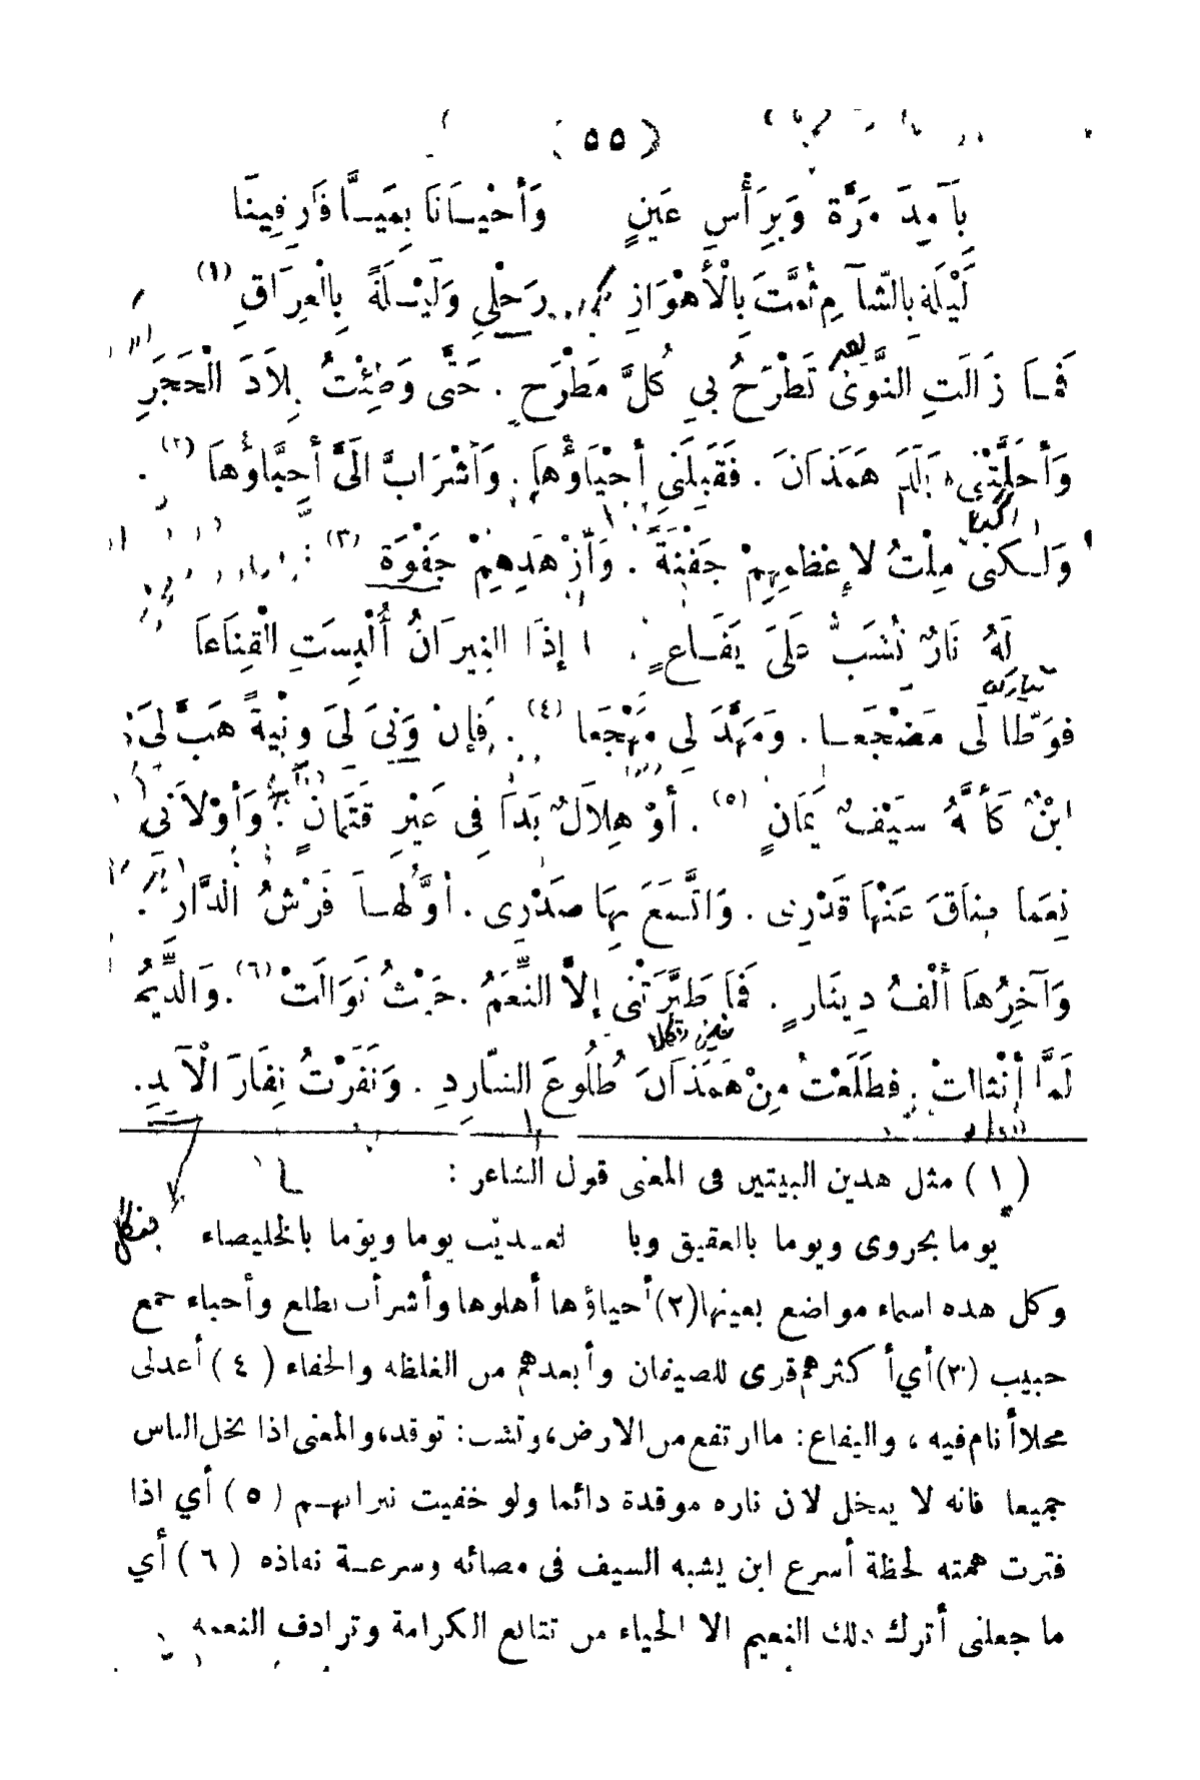 (٥٥)
بِآمِدَ مَرَّةً وَبِرَأْسِ عَينٍ وَأَحْيَانَا بِمَيَّا فَارِقِينَا
لَيْلَة بِالشّآمِ ثُمَّتَ بِالْأَهْوَازِ رَحْلِي وَلَيْلَةً بِالْعِرَاقِ (١)
فَمَا زَالَتِ النَّوَى تَطْرَحُ بِي كُلَّ مَطْرَحٍ . حَتَّى وَطِئْتُ بِلاَدَ الْحَجَرِ
وَأَحَلَّتْنِي بَلَدَ هَمَذَانَ . فَقَبِلَنِي أَحْيَاؤُهَا . وَاشْرَابَّ الَىَّ أَحِبَّاؤُهَا (٢) .
وَلٰكنى مِلْتُ لاِعْظَمِهِمْ جَفْنَةً . وَأَزْهَدِهِمْ جَفْوَةً (٣) :
لَهُ نَارٌ تُشَبُّ عَلَى يَفَاعٍ اِذَا النِيرَانُ أُلْبِسَتِ الْقِنَاعَا
فوَطَّا لَى مَضْجَعَا . وَمَهَّدَ لِى مَهْجَعَا (٤) . فَإِنْ وَنِىَ لِىَ وِنْيةً هَبَّ لِىَ
ابْنٌ كَأَنَّهُ سَيْفٌ يَمَانٍ (٥) . أَوْ هِلاَلٌ بَدَا فِى غَيْرِ قَتَمَانٍ . وَأَوْلاَنِى
نِعَما ضاقَ عَنْهَا قَدْرِى . وَاتَّسَعَ بِهَا صَدْرِى . أَوَّلها فَرْشُ الدَّارِ .
وَآخِرُهَا أَلْفُ دِينَارٍ . فَمَا طَيَّرَتْنى إِلاَّ النِّعَمُ . حَيْثُ تَوَالَتْ (٦) . وَالدِّيَمُ
لَمَّا انْثالتْ . فطَلَعْتُ مِنْ هَمَذَانَ طُلُوعَ الشّارِدِ . وَنَفَرْتُ نِفَارَ الْآبِدِ .
(١) مثل هذين البيتين فى المعنى قول الشاعر :
يوما بحزوى ويوما بالعقيق وبا لعذيب يوما ويوما بالخليصاء
وكل هذه اسماء مواضع بعينها (٢) أحياؤها أهلوها وأشرأب تطلع وأحباء جمع
حبيب (٣) أي أكثرهم قرى للضيفان وأبعدهم من الغلظه والجفاء (٤) أعدلى
محلا أنام فيه ، واليفاع : ما ارتفع من الارض، وتشب : توقد، والمعنى اذا بخل الناس
جميعا فانه لا يبخل لان ناره موقدة دائما ولو خفيت نيرانهم (٥) أي اذا
فترت همته لحظة أسرع ابن يشبه السيف فى مضائه وسرعة نفاذه (٦) أي
ما جعلنى أترك ذلك النعيم الا الحياء من تتابع الكرامة وترادف النعمه